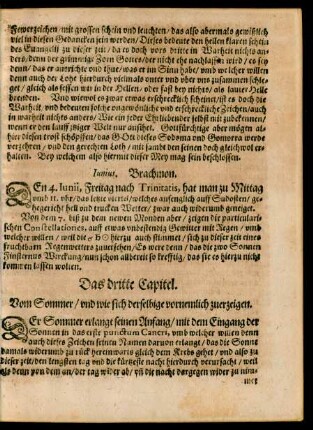 Fewerzeichen / mit grossen schein und leuchten / das also abermals gewißlich
viel in diesen Gedancken sein werden / Dieses bedeute den hellen klaren schein
des Evangelij zu dieser zeit / da es doch vors dritte in Warheit nichts an-
ders / denn der grimmige Zorn Gottes / der nicht ehe nachlassen wird / es sey
denn / das er anrichte und thue / was er im Sinn habe / und welcher willen
denn auch der Loht hierdurch vielmals unter und uber uns zusammen schle-
get / gleich als sessen wir in der Hellen / oder saß hey nichts / als lauter Helle
brenden. Und wiewol es zwar etwas erschrecklich scheinet / ist es doch die
Warheit, und bedeuten solche ungewöhnliche und erschreckliche Zeichen / auch
in warheit nichts anders / Wie ein jeder Ehrliebender selbst mit zubekennen /
wenn er den lauff itziger Welt nur ansihet. Gottsfürchtige aber mögen al-
hier diesen trost schöpffen / das GOtt dieses Sodoma und Gomorra werde
verzehren / und den gerechten Loth / mit sambt den seinen gleich wol doch
erhalten. Bey welchem also hiermit dieser Mey mag sein beschlossen.
Iunius, Brachmon.
DEn 4. Iunii, Freitag nach Trinitatis, hat man zu Mittag
umb 11. uhr / das letzte viertel / welches anfenglich auff Sudosten / ge-
hegericht hell und trucken Wetter / zwar auch widerumb geneiget.
Von dem 7. biß zu dem newen Monden aber / zeigen die particulari-
schen Constellationes, auff etwas unbestendig Gewitter mit Regen / und
welcher willen / weil die hierzu auch stimmet / sich zu dieser zeit eines
fruchtbaren Regenwetters zuversehen / Es were denn / das die zwo Sonnen
Finsternus Wirckung / nun schon allbereit so krefftig / das sie es hierzu nicht
kommen lassen wolten.
Das dritte Capitel.
Vom Sommer / und wie sich derselbige vornemlich zuerzeigen.
DEr Sommer erlangt seinen Anfang / mit dem Eingang der
Sonnen in das erste punctum Cancri, umb welcher willen denn
auch dieses Zeichen seinen Namen darvon erlangt / das die Sonne
damals widerumb zu rück hereinwarts gleich dem Krebs gehet / und also zu
dieser zeit / den lengsten tag und die kürtzeste nacht hierdurch verursacht / weil
als denn von dem an / der tag wider ab / uñ die nacht dargegen wider zu nim-
met